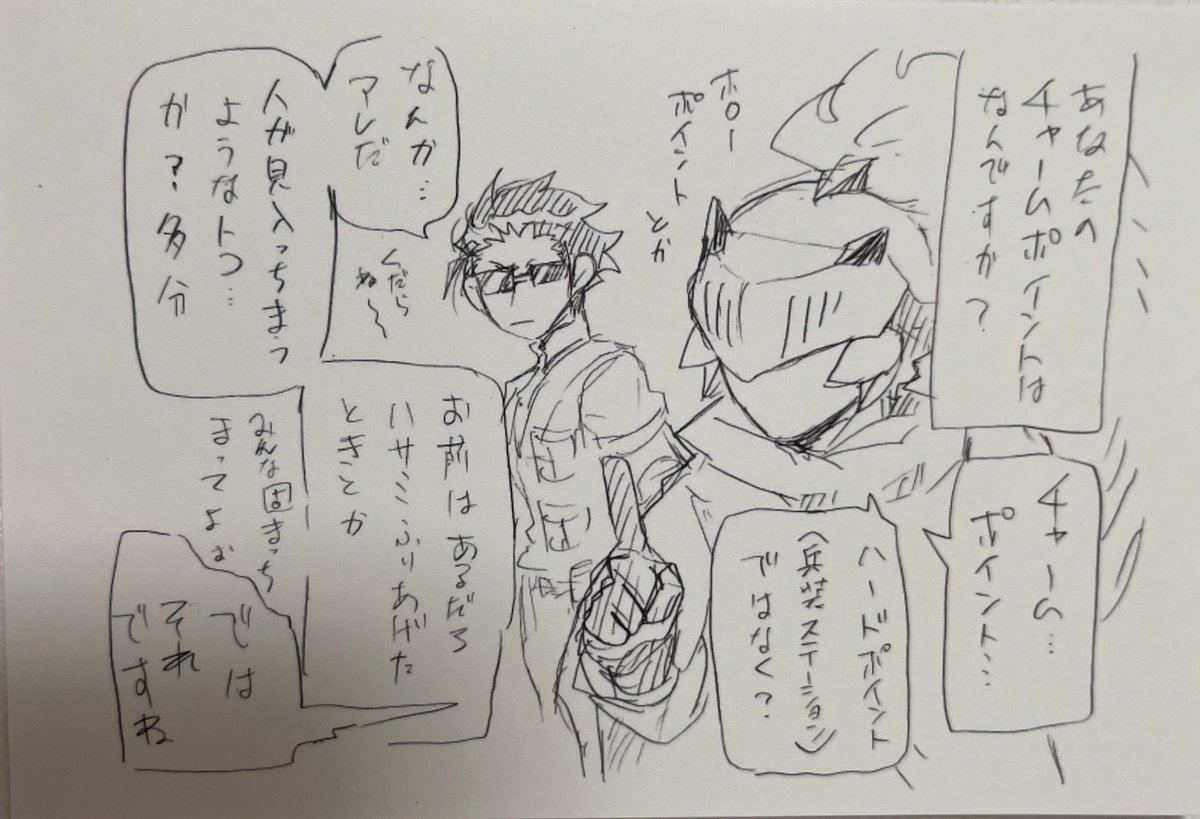 あなたの
チャームポイントは
なんですか?
チャーム…
ポイント…
ハードポイント
(兵装ステーション)
ではなく?
ホロー
ポイント
とか
なんか…
アレだ
くだら
ね〜
人が見入っちまっ
ようなトコ…
か?多分
お前はあるだろ
ハサミふりあげた
ときとか
みんな固まっち
まってよぉ
では
それ
ですね